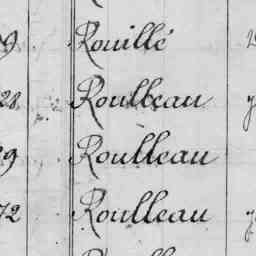 9 Rouillé
28 Roulleau
29 Roulleau
72 Roulleau